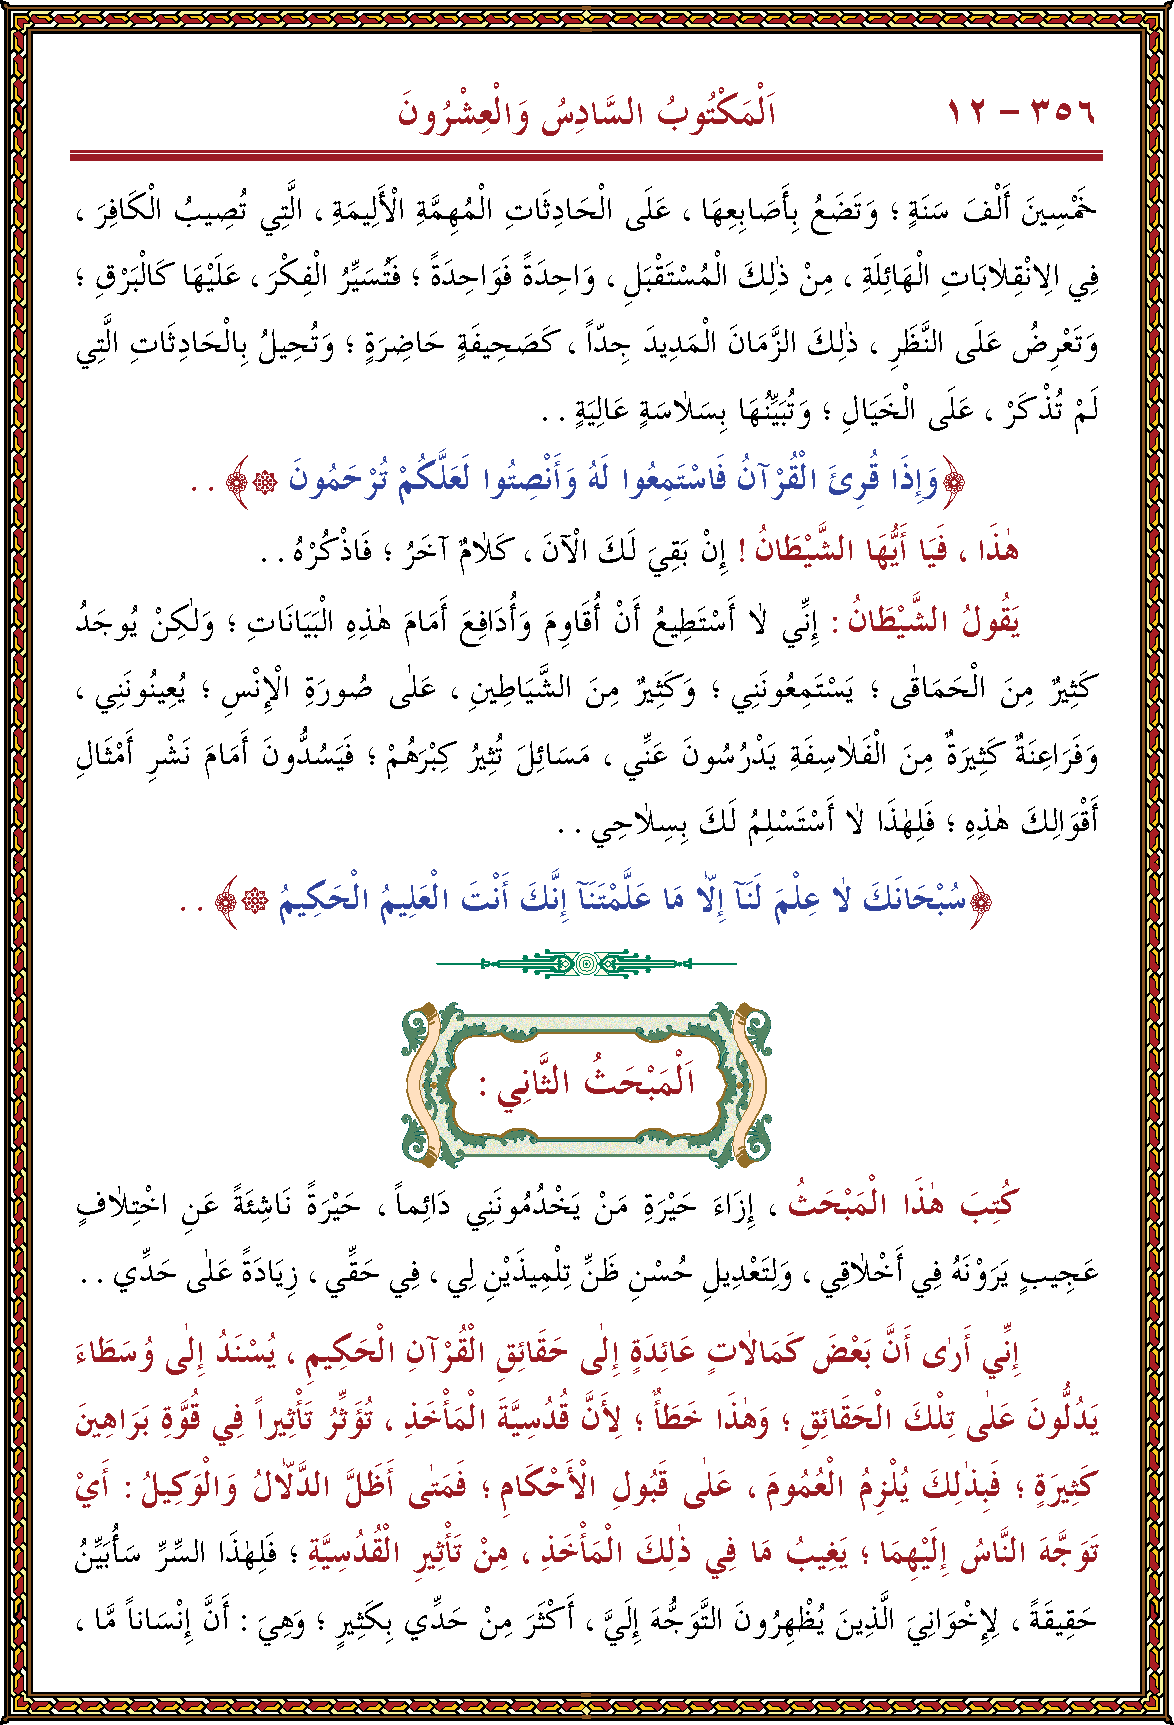 ٣٥٦ – ١٢
اَلْمَكْتُوبُ السَّادِسُ وَالْعِشْرُونَ
خَمْسِينَ أَلْفَ سَنَةٍ ؛ وَتَضَعُ بِأَصَابِعِهَا ، عَلَى الْحَادِثَاتِ الْمُهِمَّةِ الْأَلِيمَةِ ، الَّتِي تُصِيبُ الْكَافِرَ ،
فِي الِانْقِلَابَاتِ الْهَائِلَةِ ، مِنْ ذٰلِكَ الْمُسْتَقْبَلِ ، وَاحِدَةً فَوَاحِدَةً ؛ فَتُسَيِّرُ الْفِكْرَ ، عَلَيْهَا كَالْبَرْقِ ؛
وَتَعْرِضُ عَلَى النَّظَرِ ، ذٰلِكَ الزَّمَانَ الْمَدِيدَ جِدّاً ، كَصَحِيفَةٍ حَاضِرَةٍ ؛ وَتُحِيلُ بِالْحَادِثَاتِ الَّتِي
لَمْ تُذْكَرْ ، عَلَى الْخَيَالِ ؛ وَتُبَيِّنُهَا بِسَلَاسَةٍ عَالِيَةٍ . .
﴿وَإِذَا قُرِئَ الْقُرْآنُ فَاسْتَمِعُوا لَهُ وَأَنْصِتُوا لَعَلَّكُمْ تُرْحَمُونَ ۞﴾ . .
هٰذَا ، فَيَا أَيُّهَا الشَّيْطَانُ ! إِنْ بَقِيَ لَكَ الْآنَ ، كَلَامٌ آخَرُ ؛ فَاذْكُرْهُ . .
يَقُولُ الشَّيْطَانُ : إِنِّي لَا أَسْتَطِيعُ أَنْ أُقَاوِمَ وَأُدَافِعَ أَمَامَ هٰذِهِ الْبَيَانَاتِ ؛ وَلٰكِنْ يُوجَدُ
كَثِيرٌ مِنَ الْحَمَاقٰى ؛ يَسْتَمِعُونَنِي ؛ وَكَثِيرٌ مِنَ الشَّيَاطِينِ ، عَلٰى صُورَةِ الْإِنْسِ ؛ يُعِينُونَنِي ،
وَفَرَاعِنَةٌ كَثِيرَةٌ مِنَ الْفَلَاسِفَةِ يَدْرُسُونَ عَنِّي ، مَسَائِلَ تُثِيرُ كِبْرَهُمْ ؛ فَيَسُدُّونَ أَمَامَ نَشْرِ أَمْثَالِ
أَقْوَالِكَ هٰذِهِ ؛ فَلِهٰذَا لَا أَسْتَسْلِمُ لَكَ بِسِلَاحِي . .
﴿سُبْحَانَكَ لَا عِلْمَ لَنَآ إِلَّا مَا عَلَّمْتَنَآ إِنَّكَ أَنْتَ الْعَلِيمُ الْحَكِيمُ ۞﴾ . .
اَلْمَبْحَثُ الثَّانِي :
كُتِبَ هٰذَا الْمَبْحَثُ ، إِزَاءَ حَيْرَةِ مَنْ يَخْدُمُونَنِي دَائِماً ، حَيْرَةً نَاشِئَةً عَنِ اخْتِلَافٍ
عَجِيبٍ يَرَوْنَهُ فِي أَخْلَاقِي ، وَلِتَعْدِيلِ حُسْنِ ظَنِّ تِلْمِيذَيْنِ لِي ، فِي حَقِّي ، زِيَادَةً عَلٰى حَدِّي . .
إِنِّي أَرٰى أَنَّ بَعْضَ كَمَالَاتٍ عَائِدَةٍ إِلٰى حَقَائِقِ الْقُرْآنِ الْحَكِيمِ ، يُسْنَدُ إِلٰى وُسَطَاءَ
يَدُلُّونَ عَلٰى تِلْكَ الْحَقَائِقِ ؛ وَهٰذَا خَطَأٌ ؛ لِأَنَّ قُدُسِيَّةَ الْمَأْخَذِ ، تُؤَثِّرُ تَأْثِيراً فِي قُوَّةِ بَرَاهِينَ
كَثِيرَةٍ ؛ فَبِذٰلِكَ يُلْزِمُ الْعُمُومَ ، عَلٰى قَبُولِ الْأَحْكَامِ ؛ فَمَتٰى أَظَلَّ الدَّلَّالُ وَالْوَكِيلُ : أَيْ
تَوَجَّهَ النَّاسُ إِلَيْهِمَا ؛ يَغِيبُ مَا فِي ذٰلِكَ الْمَأْخَذِ ، مِنْ تَأْثِيرِ الْقُدْسِيَّةِ ؛ فَلِهٰذَا السِّرِّ سَأُبَيِّنُ
حَقِيقَةً ، لِإِخْوَانِيَ الَّذِينَ يُظْهِرُونَ التَّوَجُّهَ إِلَيَّ ، أَكْثَرَ مِنْ حَدِّي بِكَثِيرٍ ؛ وَهِيَ : أَنَّ إِنْسَاناً مَّا ،